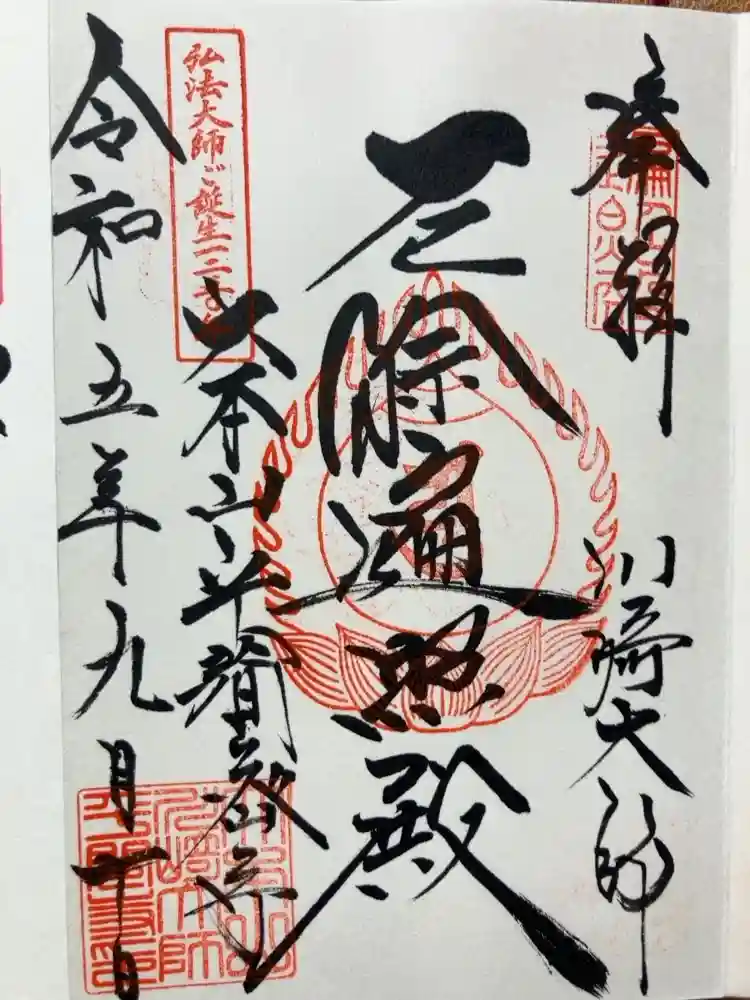 奉拝
川崎大師
厄除遍照殿
弘法大師ご誕生一二五〇年
大本山平間密寺
令和五年九月十日